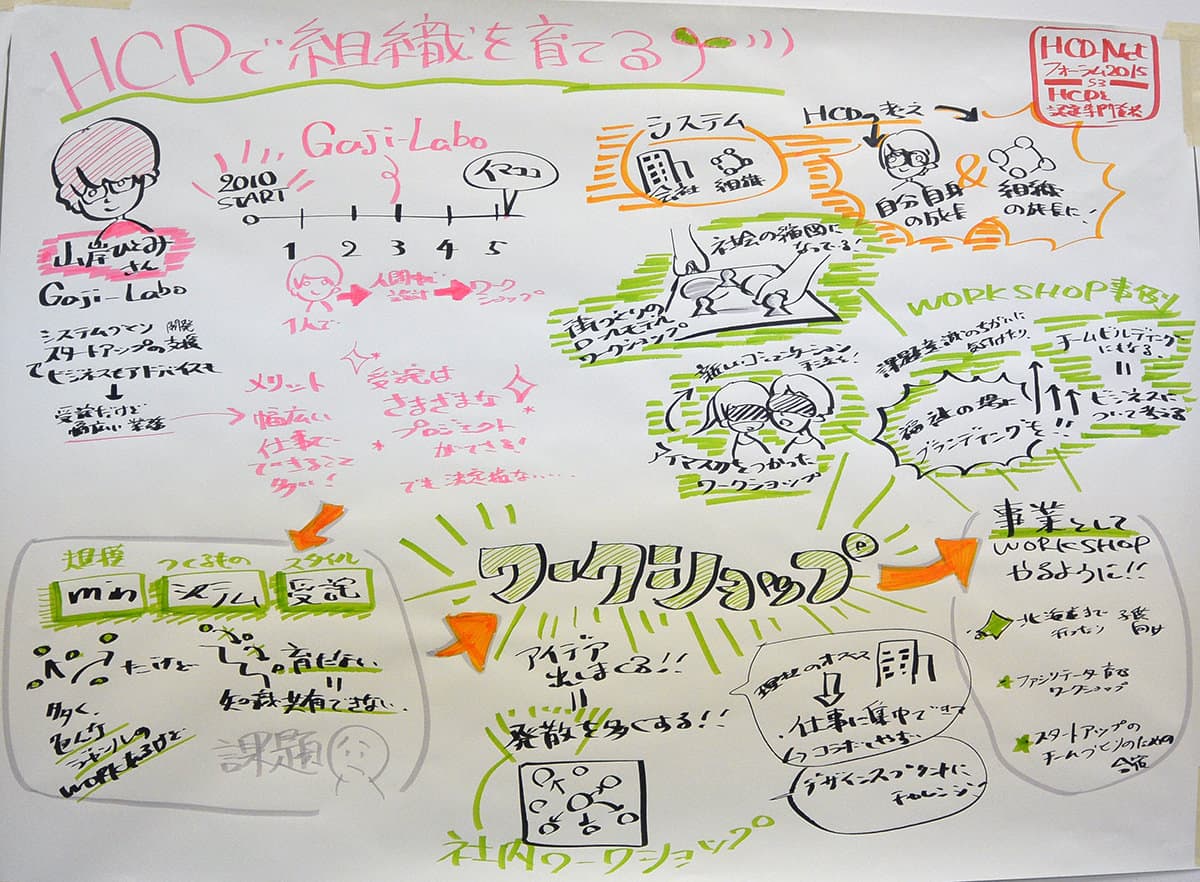 HCDで組織を育てる
HCD-Net
フォーラム2015
HCDと
認定専門家
山岸ひとみ
さん
Gaji-Labo
システムデザイン 開発
スタートアップの支援
でビジネスもアドバイスも
受託だけど
幅広い業務
Gaji-Labo
2010
START
イマココ
1 2 3 4 5
1人で
人間中心
設計
ワーク
ショップ
メリット
幅広い
仕事で
できること
多い!
受託は
さまざまな
プロジェクト
ができる!
でも決定権ない……
システム
会社 組織
HCDの考え
自分自身
の成長
&
組織
の成長に!
社会の縮図に
なってる!
街づくりの
ロールモデル
ワークショップ
新しいコミュニケーション
手法を!
アイマスクをつかった
ワークショップ
WORKSHOP事例
課題意識のちがいに
気付けたり
チームビルディング
にもなる
=
ビジネスに
ついて考える
福祉の場に
ブランディングを!!
規模 つくるもの スタイル
min システム 受託
だけど
多く、
色んな
ジャンルの
WORKあるけど
育たない
=
知識共有できない
課題
ワークショップ
アイデア
出しまくる!!
=
発散を多くする!!
社内ワークショップ
現在のオフィス
仕事に集中できて
コラボしやすい
デザインスプリントに
チャレンジ!
事業として
WORKSHOP
やるように!!
北海道まで
行ったり
子供
向け
ファシリテータ育てる
ワークショップ
スタートアップの
チームづくりのための
合宿